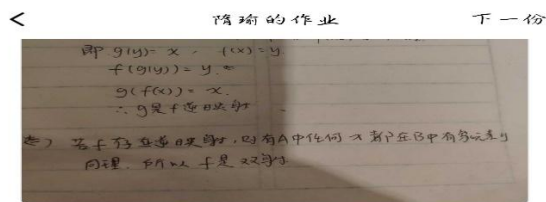 < 隋瑜的作业 下一份
即 g(y)= x , f(x)=y.
f(g(y)) = y.
g(f(x)) = x.
∴ g是f逆映射
若f存在逆映射,则有A中任何x都在B中有
同理. 所以f是双射